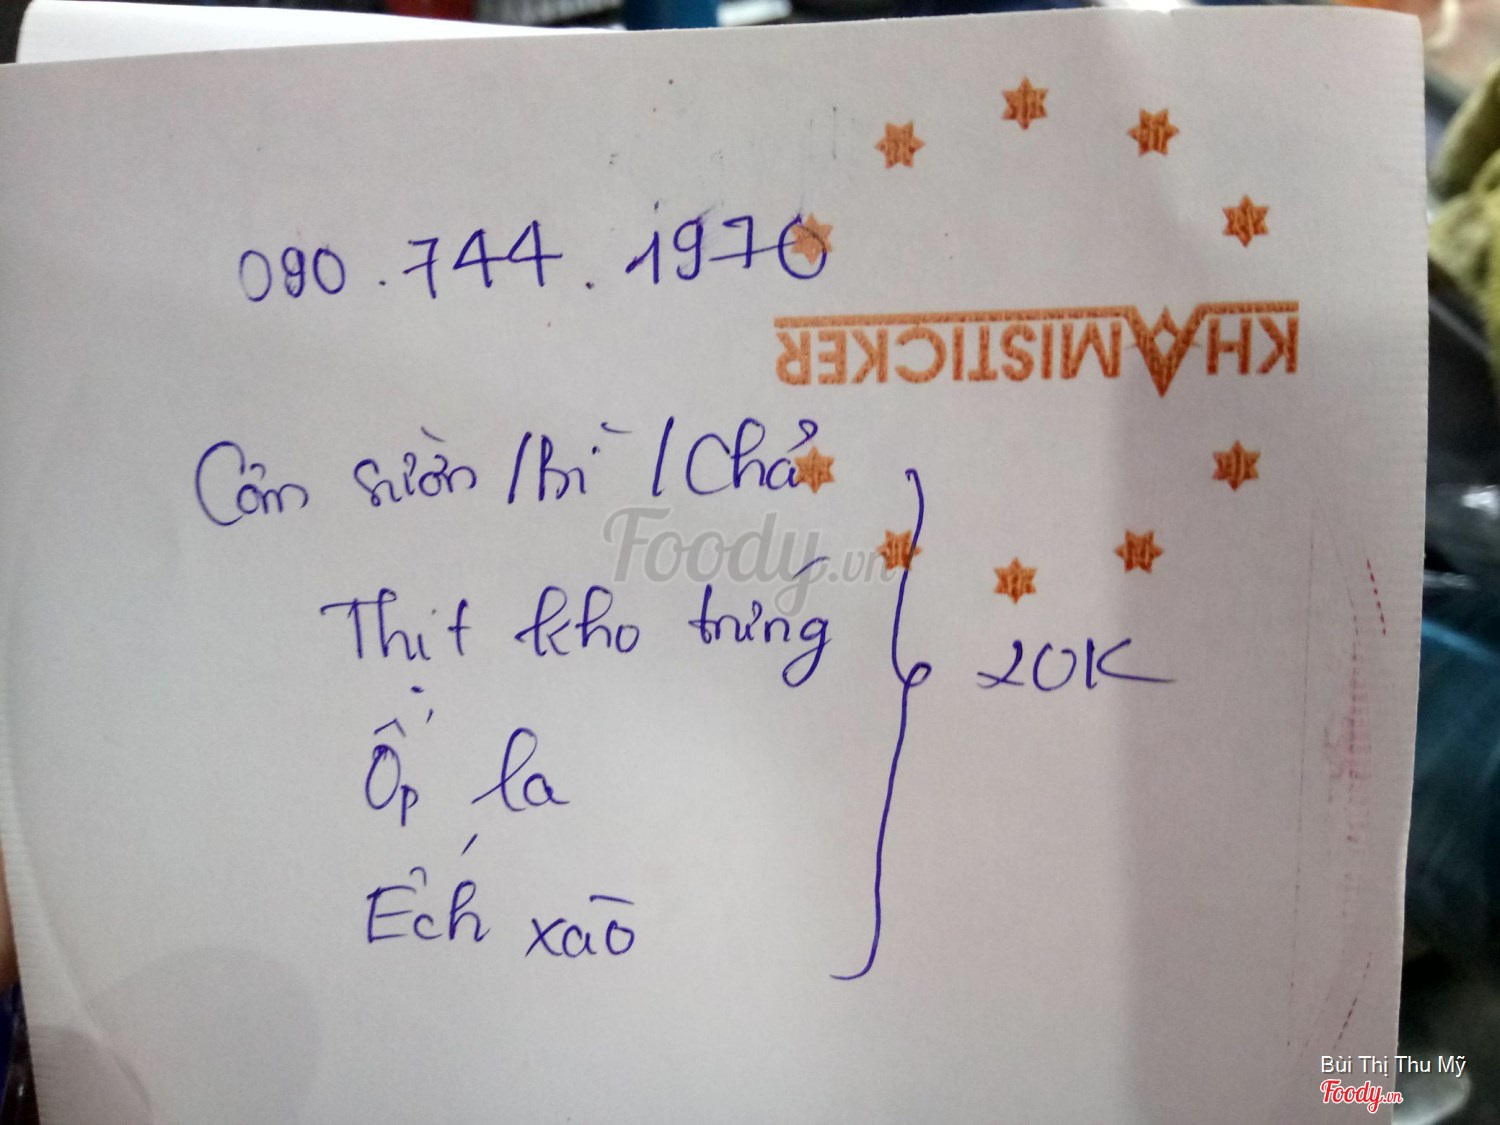 090.744.1970
KHAMISTICKER
Cơm sườn / bì / Chả
Thịt kho trứng
Ốp la
Ếch xào
20K
Foody.vn
Bùi Thị Thu Mỹ
Foody.vn